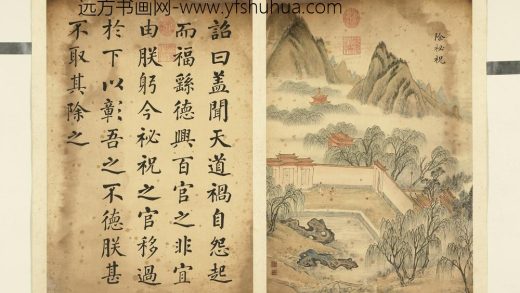 远方书画网-www.yfshuhua.com
除祕祝
詔曰盖聞天道禍自怨起
而福繇德興百官之非宜
由朕躬今祕祝之官移過
於下以彰吾之不德朕甚
不取其除之